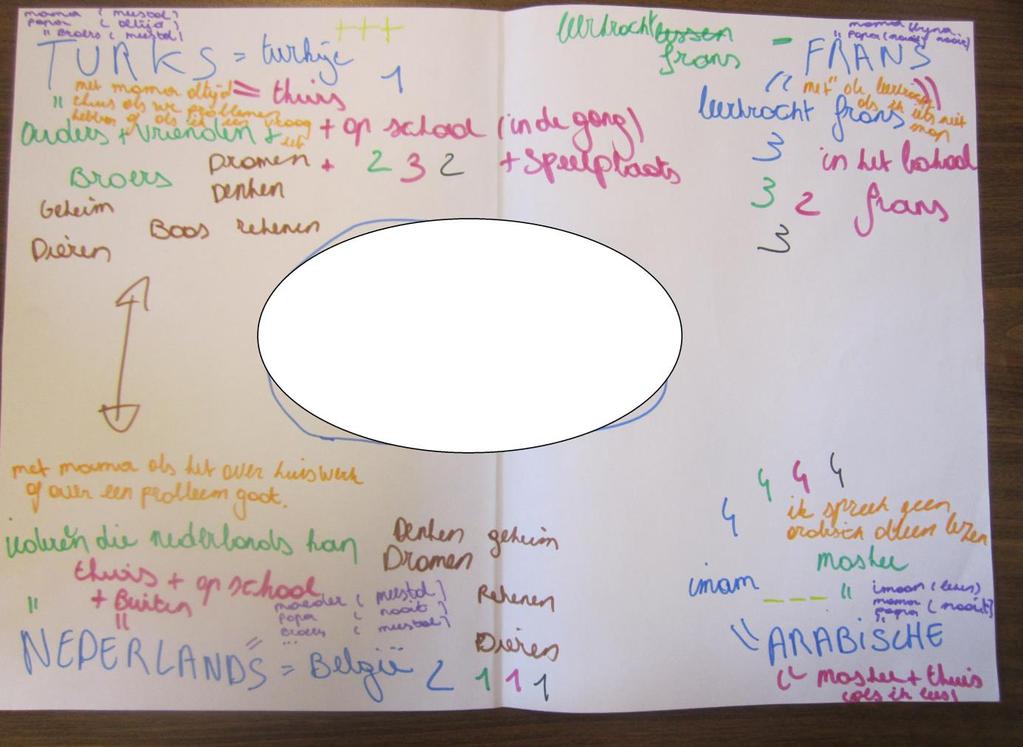 mama (meestal)
papa (altijd)
" Broers (meestal)
+++
TURKS = turkije
1
met mama altijd = thuis
" thuis als we problemen
hebben of als ik een vraag
ouders + vrienden + + op school (in de gang)
Broers
Dromen + 2 3 2 + speelplaats
Denken
Geheim
Boos rekenen
Dieren
leerkracht lessen
frans
-
mama
" papa (nooit)
FRANS
" met de leerkracht
als ik iets niet
leerkracht frans
3 in het lokaal
3 2 frans
3
met mama als het over huiswerk
of over een probleem gaat.
iedereen die nederlands kan
Denken geheim
Dromen
thuis + op school
" + Buiten
"
moeder (meestal)
papa (nooit)
Broers (meestal)
Rekenen
Dieren
NEDERLANDS = België 2 1 1 1
4 4 4
4
ik spreek geen
arabisch alleen lezen
moskee
imam _ _ _ " imam (lezen)
mama
papa (nooit)
" ARABISCHE
moskee + thuis
(als ik lees)